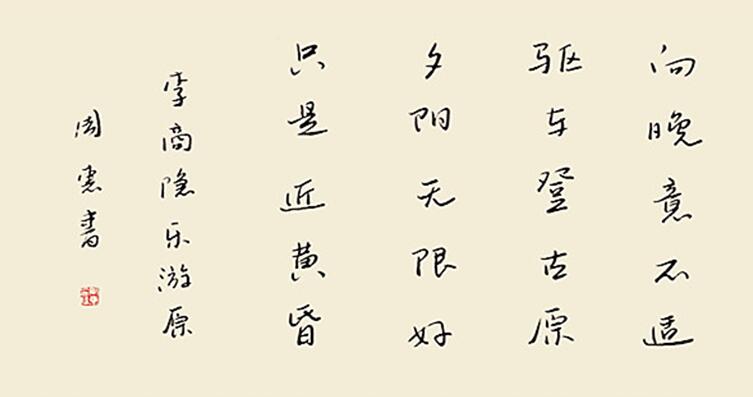 向晚意不适
驱车登古原
夕阳无限好
只是近黄昏
李商隐乐游原
周宪书